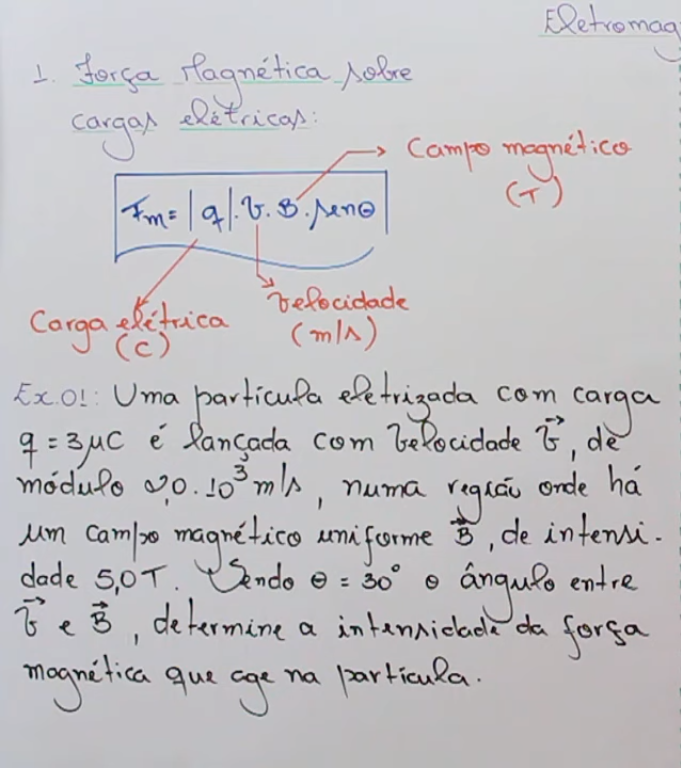 Eletromag
1. Força Magnética sobre
cargas elétricas:
Campo magnético
(T)
Fm = |q|.v.B.senθ
Velocidade
(m/s)
Carga elétrica
(C)
Ex.01: Uma partícula eletrizada com carga
q = 3μC é lançada com velocidade v⃗, de
módulo 2,0.10³ m/s, numa região onde há
um campo magnético uniforme B⃗, de intensi-
dade 5,0T. Sendo θ = 30° o ângulo entre
v⃗ e B⃗, determine a intensidade da força
magnética que age na partícula.